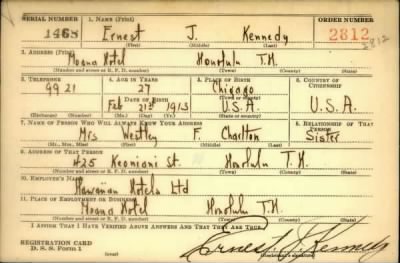 SERIAL NUMBER 1. NAME (Print) ORDER NUMBER
1468 Ernest J. Kennedy 2812
2812
(First) (Middle) (Last)
2. ADDRESS (Print)
Moana Hotel Honolulu T.H.
(Number and street or R. F. D. number) (Town) (County) (State)
3. TELEPHONE 4. AGE IN YEARS 5. PLACE OF BIRTH 6. COUNTRY OF CITIZENSHIP
9921 27 Chicago
DATE OF BIRTH (Town or county)
Feb 21st 1913 U.S.A. U.S.A.
(Exchange) (Number) (Mo.) (Day) (Yr.) (State or country)
7. NAME OF PERSON WHO WILL ALWAYS KNOW YOUR ADDRESS 8. RELATIONSHIP OF THAT PERSON
Mrs Westley F. Charlton Sister
(Mr., Mrs., Miss) (First) (Middle) (Last)
9. ADDRESS OF THAT PERSON
425 Keoniani St. Honolulu T.H.
(Number and street or R. F. D. number) (Town) (County) (State)
10. EMPLOYER'S NAME
Hawaiian Hotels Ltd
11. PLACE OF EMPLOYMENT OR BUSINESS
Moana Hotel Honolulu T.H.
(Number and street or R. F. D. number) (Town) (County) (State)
I AFFIRM THAT I HAVE VERIFIED ABOVE ANSWERS AND THAT THEY ARE TRUE.
REGISTRATION CARD
D. S. S. Form 1 Ernest J. Kennedy
(Registrant's signature)